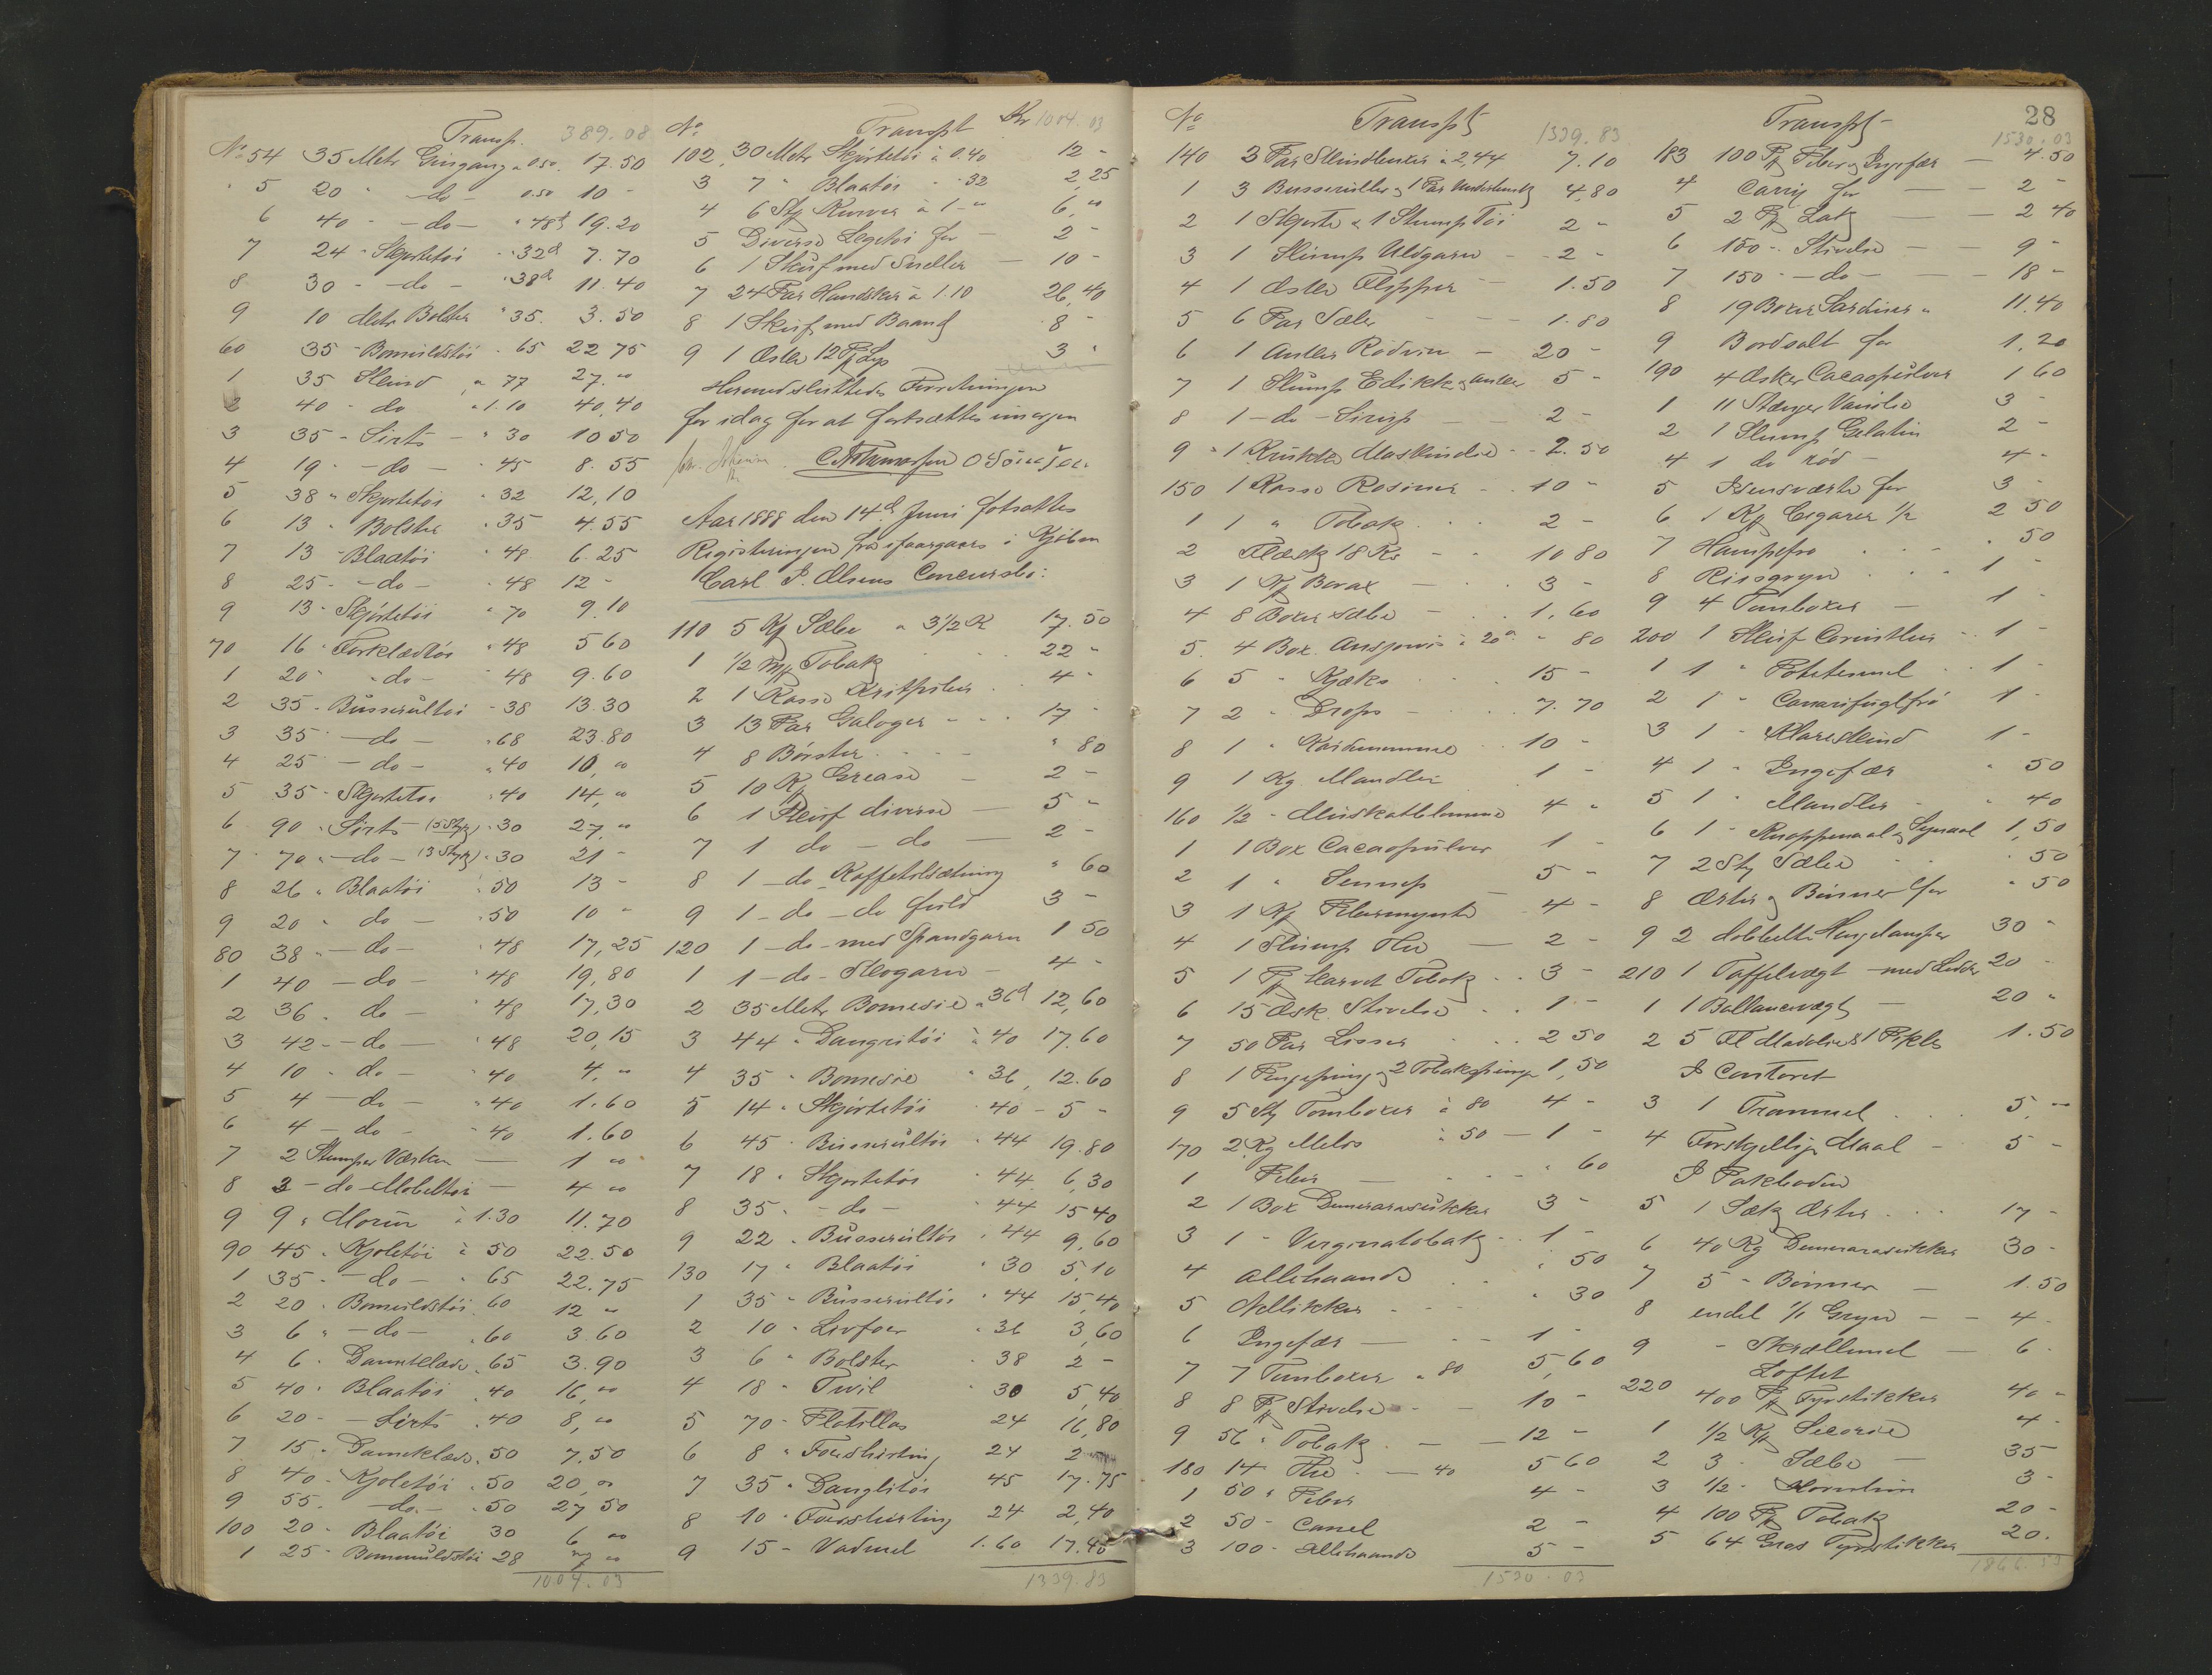 Transp. 389.08
No 54 35 Metr Gingang a 0.50 17.50
" 5 20 " - do - 0.50 10 -
6 40 - - do - " 48 19.20
7 24 " Skjortetøi " 32 7.70
8 30 - - do - " 38 11.40
9 10 Metr Bolster " 35. 3.50
60 35 - Bomuldstøi " 65 22 75
1 35 " 77 27. "
2 40 - do " 1.10 40,40
3 35 - Sirts - " 30 10 50
4 19 - - do - " 45 8.55
5 38 " Skjortetøi " 32 12,10
6 13 " Bolster " 35 4.55
7 13 - Blaatøi " 48 6.25
8 25 - - do - " 48 12 -
9 13 - Skjörtetøi " 70 9.10
70 16 " Forklædtøi " 48 5 60
1 20 " - do - " 48 9.60
2 35 - Busserultøi - 38 13.30
3 35 - - do - " 68 23.80
4 25 - do - " 40 10, "
5 35 - Skjortetøi " 40 14, "
6 90 " Sirts - (5 Styk) " 30 27, "
7 70 " - do - (3 Styk) " 30 21 -
8 26 " Blaatöi " 50 13 -
9 20 " do - " 50 10 -
80 38 " - do - " 48 17,25
1 40 - do - " 48 19,80
2 36 - do - " 48 17,30
3 42 - - do - " 48 20,15
4 10 - do - " 40 4, "
5 4 - do - " 40 1.60
6 4 - do - " 40 1.60
7 2 Stumper Værken - 1 "
8 3 - do - Möbeltøi - 4 "
9 9 " à 1.30 11.70
90 45 " Kjoletöi à 50 22.50
1 35 - - do - " 65 22.75
2 20 " Bomuldstøi 60 12 "
3 6 " - do - " 60 3.60
4 6 " Dameklæde " 65 3.90
5 40 " Blaatöi " 40 16, "
6 20 - - Sirts " 40 8, "
7 15 " Dameklæde " 50 7.50
8 40 - Kjoletöi " 50 20, "
9 55 - - do - " 50 27 50
100 20 - Blaatöi 30 6 "
1 25 - Bommuldstöi 28 7 "
1004.03
No Transpt Kr 1004.03
102 30 Metr Skjörtetöi à 0.40 12 -
3 7 " Blaatöi " 32 2,25
4 6 Stk Kurver à 1 - " 6, "
5 Diverse Legetöi for - 2 -
6 1 Skuf med Sneller - 10 -
7 24 Par Handsker à 1.10 26,40
8 1 Skuf med Baand 8 -
9 1 Æske 12 Lys 3 "
Hermed sluttedes Forretningen
for idag for at fortsættes imorgen
Aar 1888 den 14de Juni fotsattes
Registeringen fra ifaaregaars i Kjöbm
Carl P. Olsens Concursbo:
110 5 Kg Sæbe a 3 1/2 K 17.50
1 1/2 Tobak 22 -
2 1 Kasse Kritpiber 4 -
3 13 Par Galoger - - - 17 -
4 8 Börster " 80
5 10 Grease - 2 -
6 1 Skuf diverse - 5 -
7 1 do - do - 2 -
8 1 - do - Kaffetilsætning " 60
9 1 - do - do 3 -
120 1 - do - med Spandgarn 1 50
1 1 - do - Skogarn - 4 -
2 35 Metr Bomesie " 36 12,60
3 44 " Dongritöi à 40 17.60
4 35 " Bomesie " 36, 12.60
5 14 " Skjörtetöi - 40 - 5 -
6 45 - Busserultöi " 44 19.80
7 18 " Skjortetöi " 44 6,30
8 35 - - do - " 44 15 40
9 22 - Busserultöi " 44 9,60
130 17 " Blaatöi " 30 5,10
1 35 - Busserultöi " 44 15,40
2 10 - Livfoer " 36 3,60
3 6 " Bolster - 38 2 -
4 18 " Twil " 30 5,40
5 70 - Flotillas 24 16,80
6 8 " Foershirting 24 2
7 35 " Danglitöi 45 17.75
8 10 - Foershirting 24 2,40
9 15 - Vadmel 1.60 17.40
1339.83
28
No Transpt 1339.83
140 3 Par Skindbuxer à 2,44 7.10
1 3 Busseruller & 1 Par Underbenk 4,80
2 1 Skjorte & 1 Stump Töi 2 -
3 1 Slump Uldgarn - 2 -
4 1 Æske - 1.50
5 6 Par Sæler - - 1.80
6 1 Anker Rödvin - 20 -
7 1 Slump Edikk & anker 5 -
8 1 - do - Sirup - 2 -
9 " 1 Krukke Maskinolie - 2.50
150 1 Kasse Rosiner - 10 -
1 1 " Tobak 2 -
2 Flæsk 18 Ko - 10 80
3 1 Kg Borax - 3 -
4 8 Boxer Sæbe - 1,60
5. 4 Box. Ansjovis à 20 " 80
6 5 " Kjæks 15 -
7 2 " Drops - 7.70
8 1 " Kardemomme 10 -
9 1 Kg Mandler 1 -
160 1/2 - Muskatblomme 4 "
1 1 Box Cacaopulver 1 -
2 1 " Sennep 5 -
3 1 Kg Pebermynte 4 -
4 1 Slump The - 2 -
5 1 karvet Tobak - 3 -
6 15 Æsk. Stivelse 1 -
7 50 Par Lisser 2 50
8 1 Pengepung & 2 Tobakspunge 1,50
9 5 Stk Tomboxer à 80 4 -
170 2 Kg Melis à 50 - 1 -
1 Peber - " 60
2 1 Box Demerarasukker 3 -
3 1 - Virginatobak - 1 -
4 Allehaande " 50
5 Nellikker - " 30
6 Ingefær - 1 -
7 7 Tomboxer " 80 5,60
8 8 Stivelse - 10 -
9 56 " Tobak - 12 -
180 14 The - 40 5 60
1 50 " Peber 4 -
2 50 - Canel 2 -
3 100 - Allehaande 5 -
1530.03
Transpt - 1530.03
183 100 Peber & Ingefær - 4.50
4 Carry for - 2 -
5 2 Lak - 2 40
6 100 - Stivelse - 9 -
7 150 - - do - 18 -
8 19 Boxer Sardiner " 11.40
9 Bordsalt for 1,20
190 4 Æsker Cacaopulver 1 60
1 11 Stænger Vanilie 3 -
2 1 Slump Gelatin 2 -
4 1 do röd - 4 -
5 Isensværte for 3 -
6 1 Cigarer 1/2 2 50
7 Hampefrö " 50
8 Rissgryn 1 -
9 4 Tomboxer - 1 -
200 1 Skuf Corinther 1 -
1 1 " Potetesmel 1 -
2 1 " Canarifuglfrö 1 -
3 1 - 1 -
4 1 " Ingefær " 50
5 1 " Mandler " 40
6 1 - Knappenaal & Synaal 1,50
7 2 Stk Sæbe " 50
8 Ærter & Bönner for " 50
9 2 dobbelte Hengelamper 30 -
210 1 Taffelvægt - med Lodder 20 -
1 1 Ballancevægt - 20 "
2 5 Fl Madolie & 1 Pikls 1.50
I Contoret
3 1 Trommel 5, "
4 Forskjellige Maal - 5 -
I Pakboden
5 1 Sæk Ærter 17 -
6 40 Kg Demerarasukker 30 -
7 5 - Bönner - 1.50
8 endel 1/1 Gryn - 4 -
9 - Skrællemel - 6 -
Loftet
220 400 Fyrstikker 40 "
1 1/2 Kg Sicorie 4 -
2 3 - Sæbe - 35
3 1/2 - 3 -
4 100 Tobak 20 -
5 64 Gros Fyrstikker 20.
1866.53